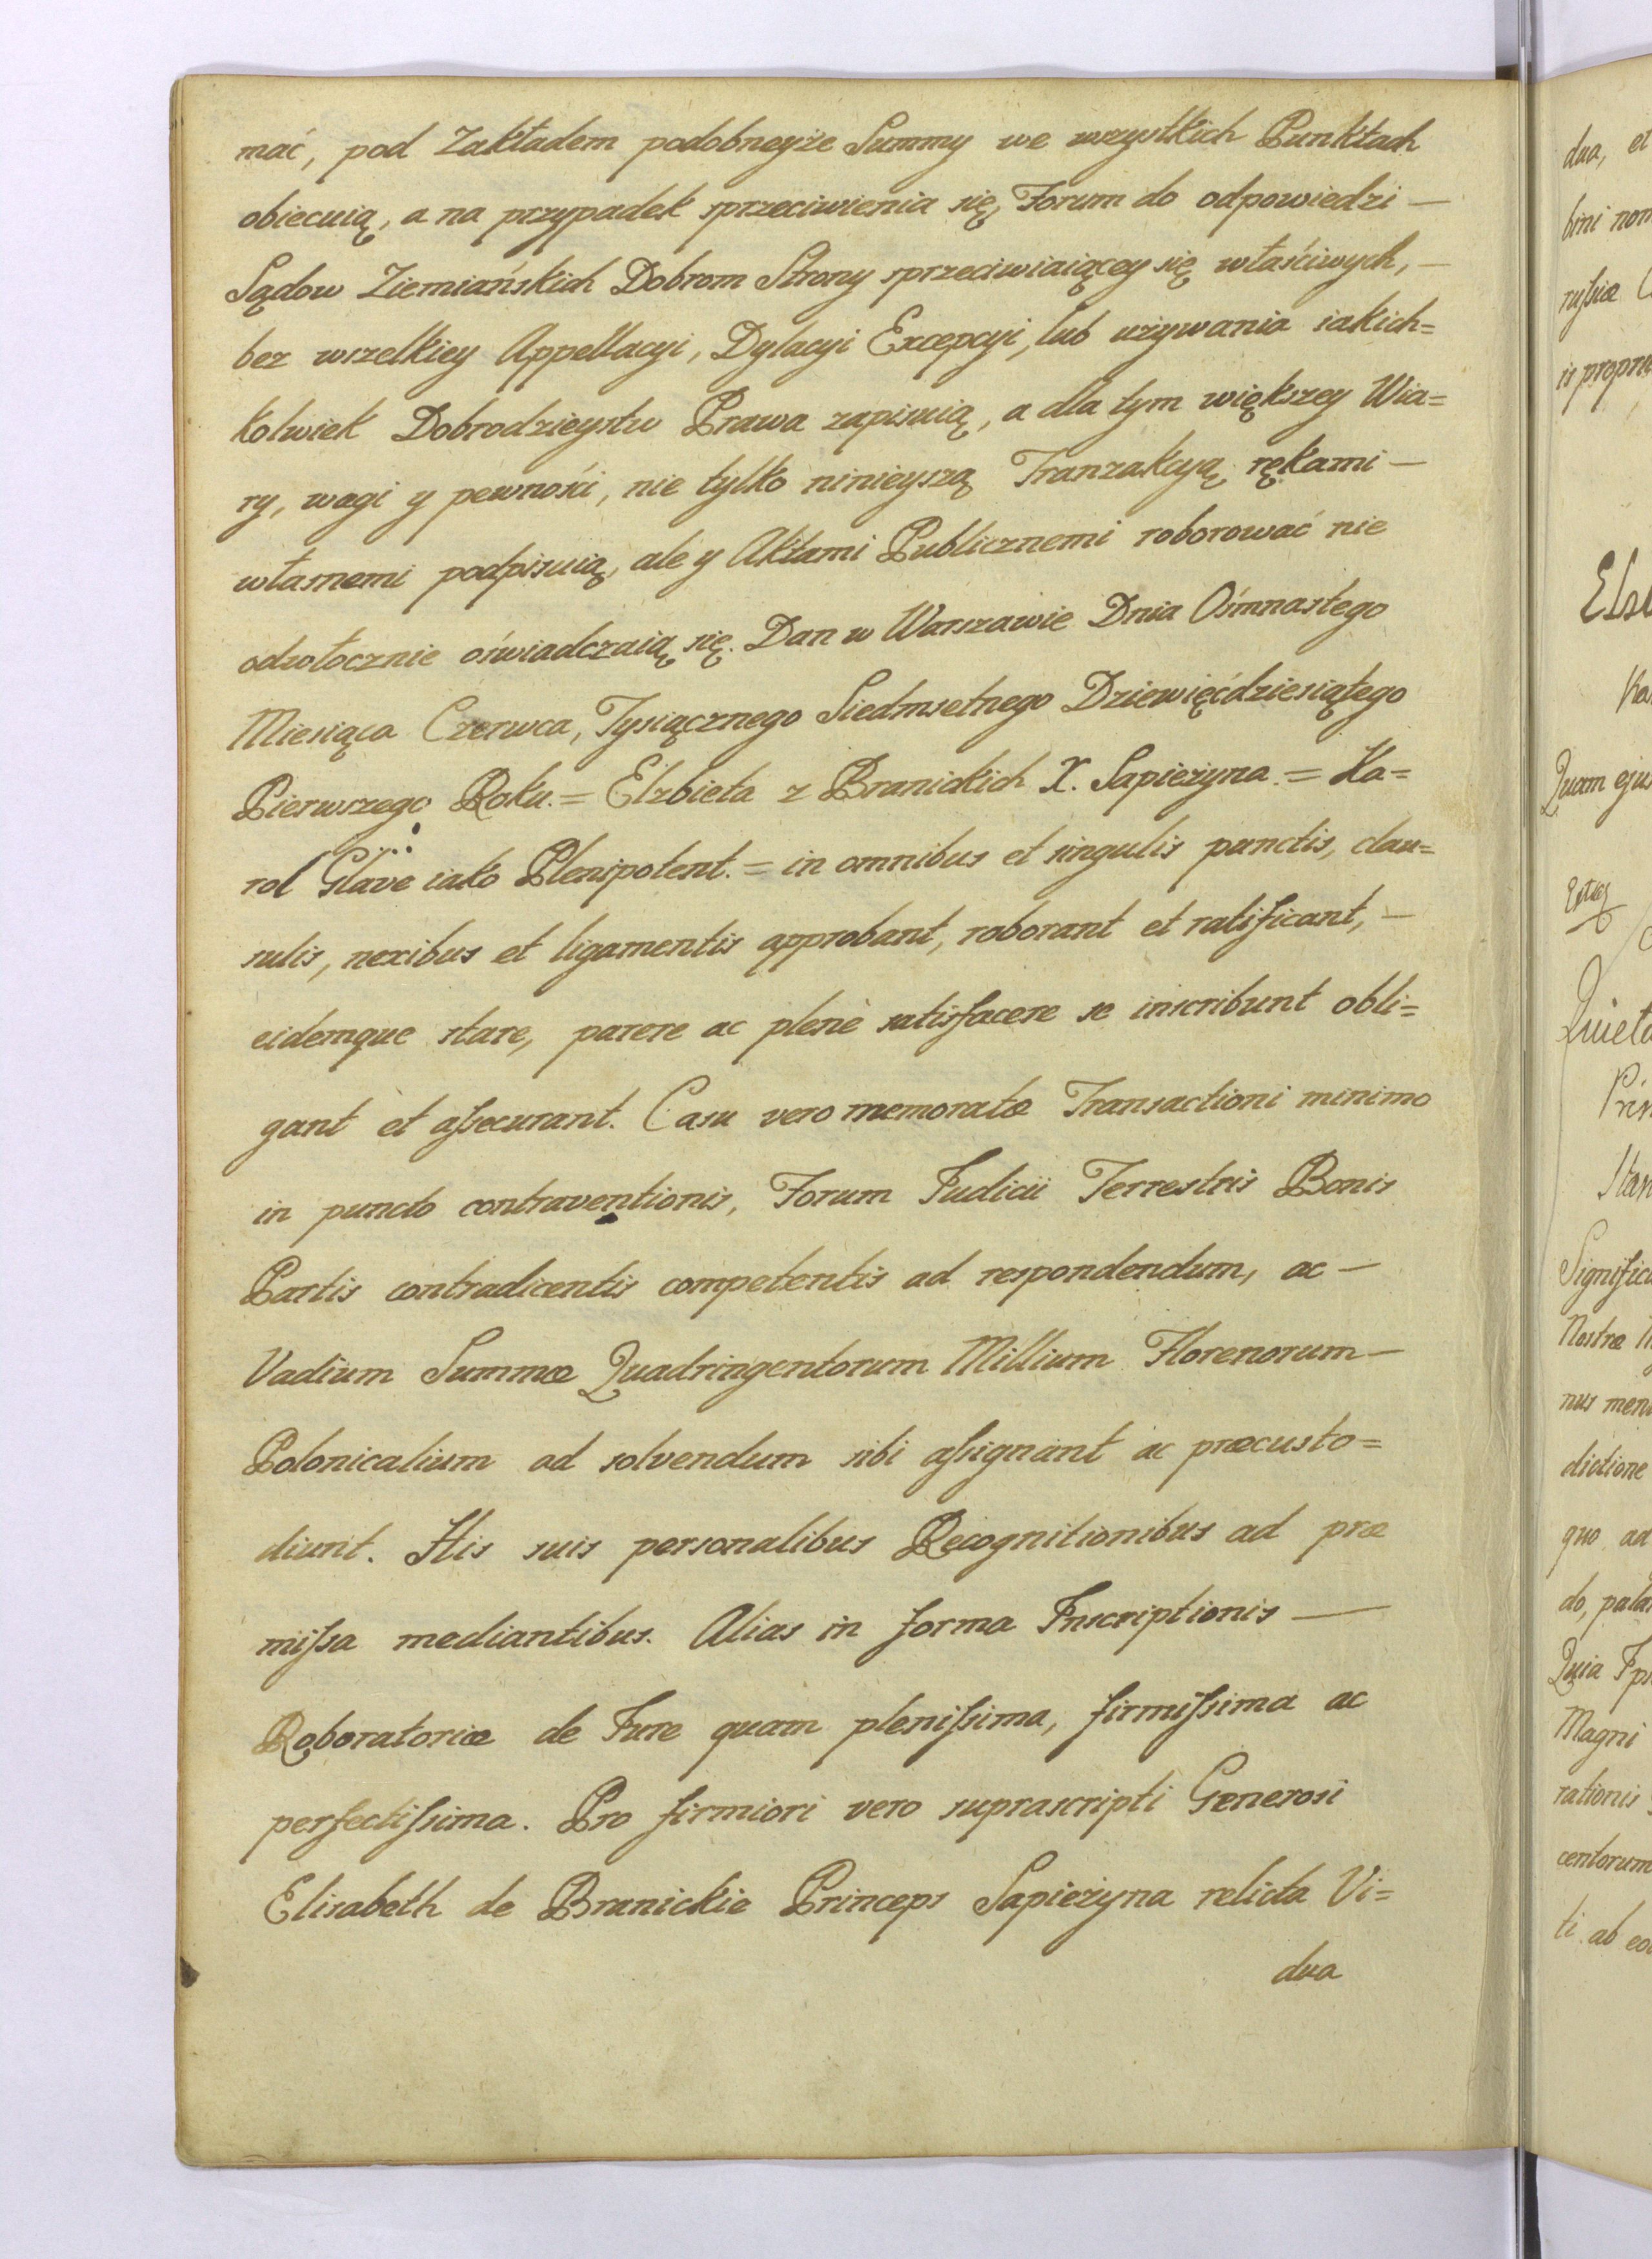 mać, pod Zakładem podobneyże Summy we wszystkich Punktach
obiecuią, a na przypadek sprzeciwienia się, Forum do odpowiedzi —
Sądow Ziemiańskich Dobrom Strony sprzeciwiaiącey się właściwych, —
bez wszelkiey Appellacyi, Dylacyi Excepcyi, lub używania iakich=
kolwiek Dobrodzieystw Prawa zapisuią, a dla tym większey Wia=
ry, wagi y pewności, nie tylko ninieyszą Tranzakcyą rękami —
własnemi podpisuią, ale y Aktami Publicznemi roborować nie
odwłocznie oświadczaią się. Dan w Warszawie Dnia Ośmnastego
Miesiąca Czerwca, Tysiącznego Siedmsetnego Dziewięćdziesiątego
Pierwszego Roku. = Elżbieta z Branickich X. Sapieżyna = Ka=
rol Glave iako Plenipotent. = in omnibus et singulis punctis, clau=
sulis, nexibus et ligamentis approbant, roborant et ratificant, —
eidemque stare, parere ac plenè satisfacere se inscribunt obli=
gant et aſsecurant. Casu vero memoratæ Transactioni minimo
in puncto contraventionis, Forum Judicii Terrestris Bonis
Partis contradicentis competentis ad respondendum, ac —
Vadium Summæ Quadringentorum Millium Florenorum —
Polonicalium ad solvendum sibi aſsignant ac præcusto=
diunt. His suis personalibus Recognitionibus ad præ
miſsa mediantibus. Alias in forma Inscriptionis —
Roboratoriæ de Jure quam pleniſsima, firmiſsima ac
perfectiſsima. Pro firmiori vero suprascripti Generosi
Elisabeth de Branickie Princeps Sapieżyna relicta Vi=
dua
dua, et
bini nom
ruſsiæ
is propri
Quam ejus
Significa
Nostræ
nus men
dictione
quo ad
do, pala
Quia Ip
Magni
rationis
centorum
ti ab eo